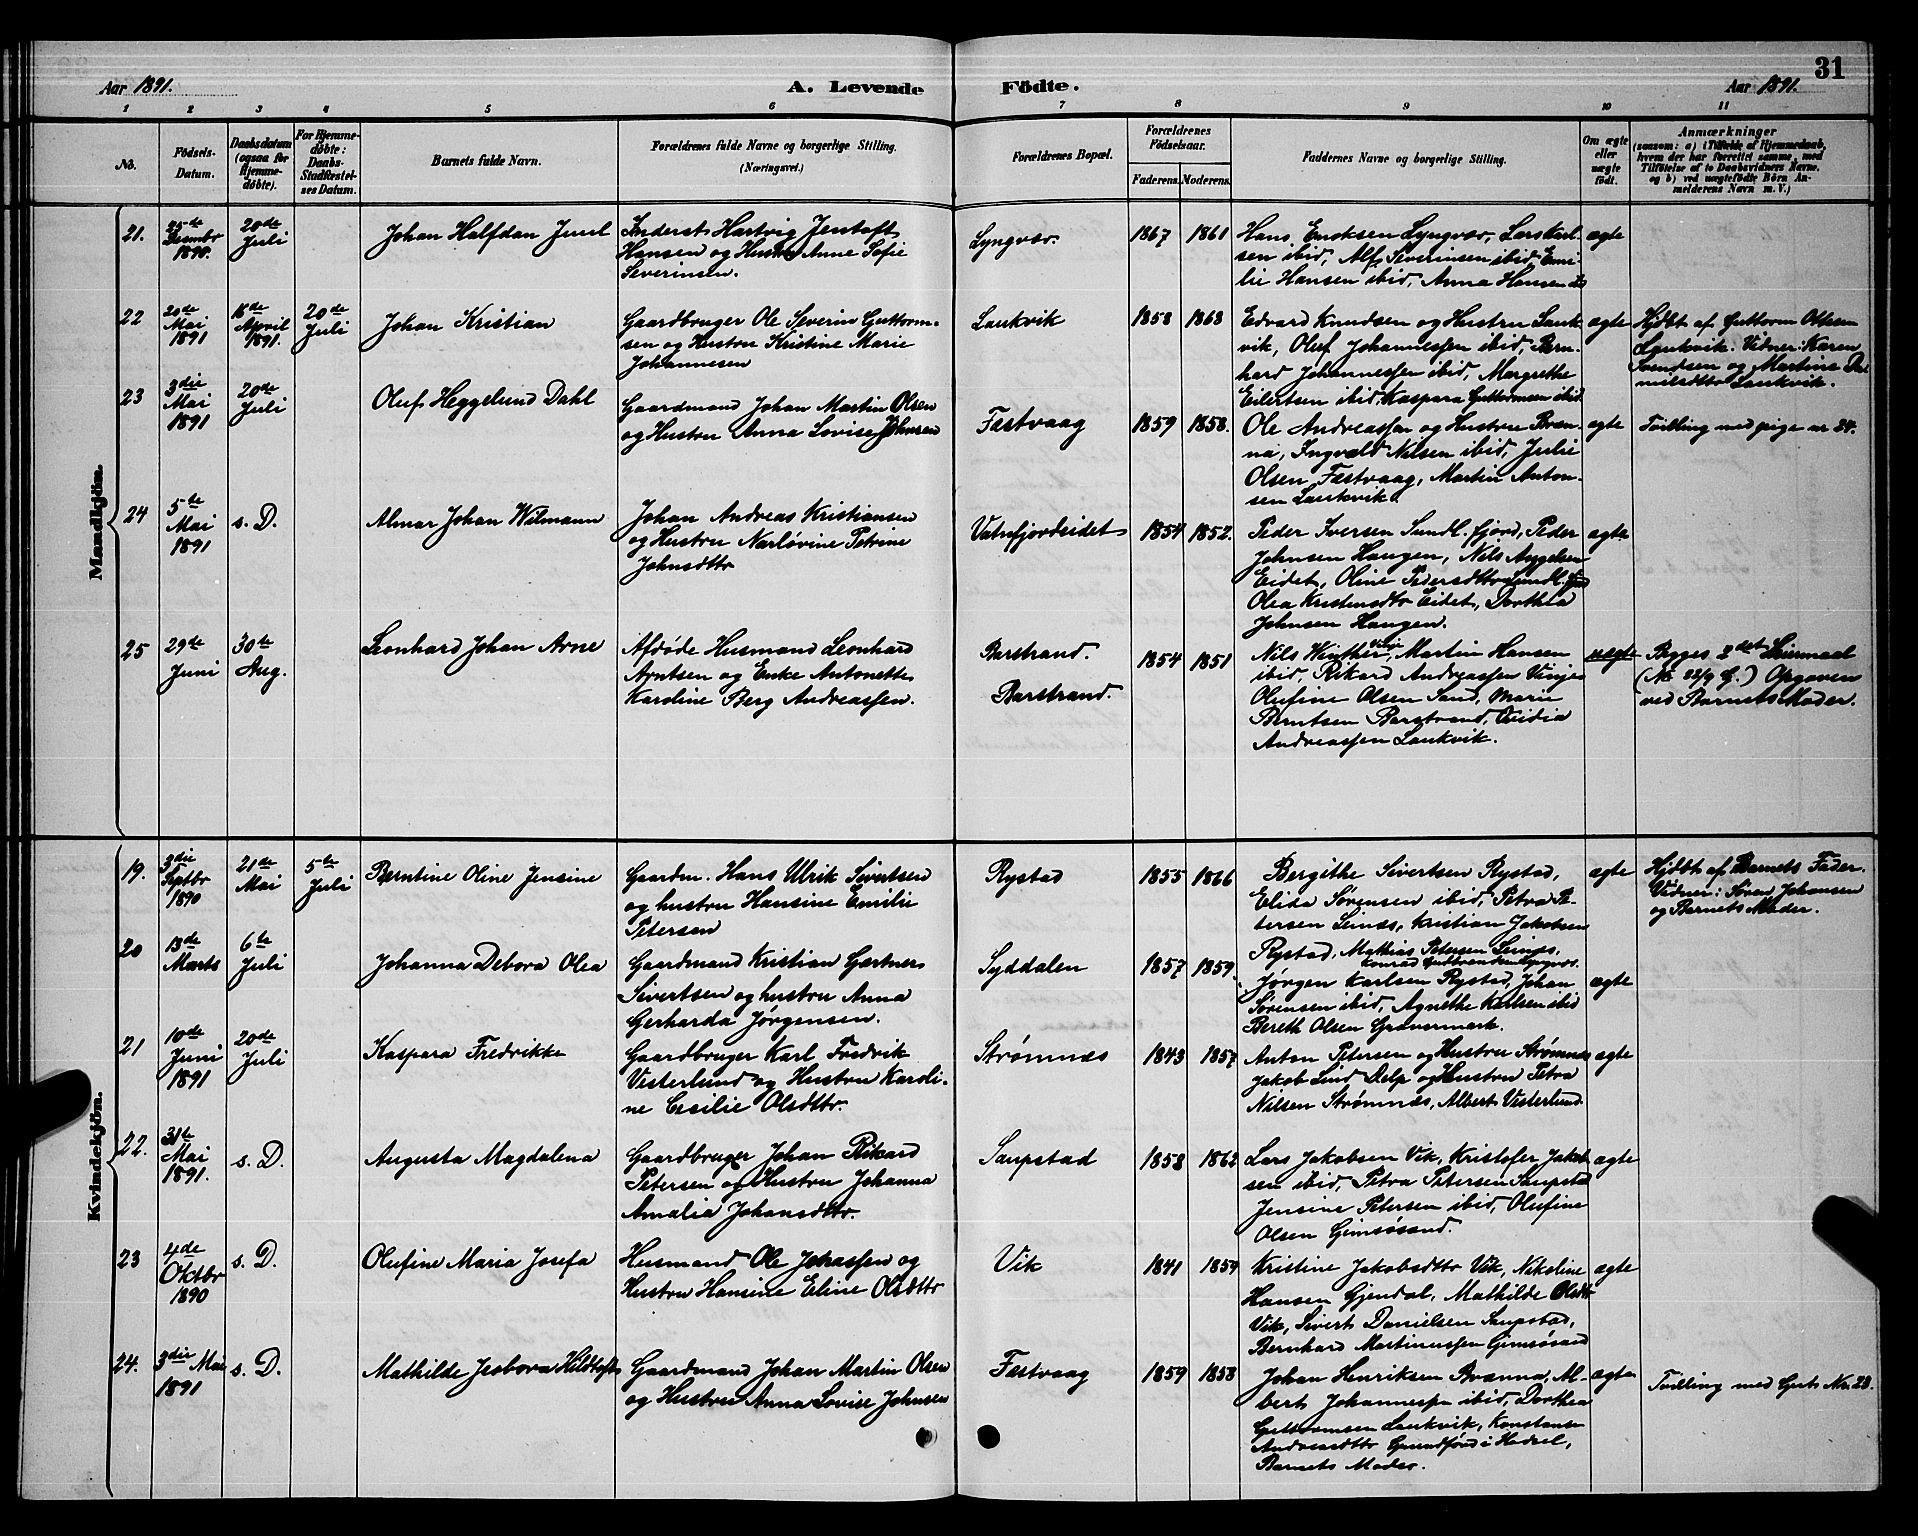 31
Aar 1891.
A. Levende
Födte.
Aar 1891.
1 2 3 4 5 6 7 8 9 10 11
No.
Födsels-
Datum.
Daabsdatum
(ogsaa for
Hjemme-
döbte).
For Hjemme-
döbte:
Daabs-
Stadfæstel-
ses Datum.
Barnets fulde Navn.
Forældrenes fulde Navne og borgerlige Stilling.
(Næringsvei.)
Forældrenes Bopæl.
Forældrenes
Födselsaar.
Faderens.
Moderens.
Faddernes Navne og borgerlige Stilling.
Om ægte
eller
uægte
födt.
Anmærkninger
(saasom: a) i Tilfælde af Hjemmedaab,
hvem der har forrettet samme, med
Tilföielse af to Daabsvidners Navne,
og b) ved uægtefödte Börn An-
melderens Navn m. V.)
Mandkjön.
21.
25de
Desembr
1890.
20de
Juli
Johan Halfdan Juul
Inderst Hartvig Jentoft
Hansen og Hustru Anne Sofie
Severinsen.
Lyngvær.
1867
1861
Hans Eriksen Lyngvær, Lars Karl-
sen ibid, Alf Severinsen ibid, Emi-
lie Hansen ibid, Anna Hansen
ægte
22
20de
Mai
1891
18de
April
1891.
20de
Juli
Johan Kristian
Gaardbruger Ole Severin Guttorm-
sen og Hustru Kristine Marie
Johannesen
Laukvik
1858
1863
Edvard Knudsen og Hustru Lauk-
vik, Oluf Johannessen ibid, Bern-
hard Johannessen ibid, Margrethe
Eilertsen ibid, Kaspara Guttormsen ibid
ægte
Hjdbt af Guttorm Ottesen
Laukvik. Vidner: Karen
Svendsen og Martine Da-
nielsdttr Laukvik.
23
3die
Mai
1891
20de
Juli
Oluf Heggelund Dahl
Gaardmand Johan Martin Olsen
og Hustru Anna Lovise Johnsen
Festvaag
1859
1858.
Ole Andreassen og Hustru Bran-
na, Ingvald Nilsen ibid, Julie
Olsen Festvaag, Martin Anton-
sen Laukvik.
ægte
Tvilling med pige nr 24.
24
5te
Mai
1891
s. D.
Almar Johan Wilmann
Johan Andreas Kristiansen
og Hustru Narløvine Petrine
Johnsdttr
Vatnfjordeidet
1854
1852.
Peder Iversen Sundl. fjord, Peder
Johnsen Haugen, Nils Angelsen
Eidet, Oline Pedersdttr Sundl.
Olea Kristensdtr Eidet, Dorthea
Johnsen Haugen.
ægte
25
29de
Juni
30te
Aug.
Leonhard Johan Arne
Afdøde Husmand Leonhard
Arntsen og Enke Antonette
Karoline Berg Andreassen.
Barstrand.
Barstrand.
1854
1851
Nils Winther, Martin Hansen
ibid, Rikard Andreassen Vinje
Olufine Olsen Sand, Marie
Berntsen Barstrand, Ovidia
Andreassen Laukvik.
uægte
Begges 2det Leiermaal
Opgaven
ved Barnets Moder.
Kvindekjön.
19.
3die
Septbr
1890
21de
Mai
5te
Juli
Berntine Oline Jensine
Gaardm. Hans Ulrik Sivertsen
og hustru Hansine Emilie
Petersen
Rystad
1855
1866
Bergithe Sivertsen Rystad,
Elida Sørensen ibid, Petra Pe-
tersen Leinæs, Kristian Jakobsen
Rystad, Mathias Petersen Leinæs,
ægte
Hjdbt af Barnets Fader.
Vidner: Søren Johansen
og Barnets Moder.
20
13de
Marts
6te
Juli
Johanna Debora Olea
Gaardmand Kristian Gartner
Sivertsen og hustru Anna
Gerharda Jørgensen.
Syddalen
1857
1859.
Konrad Gudbrandsen Lyngvær.
Jørgen Karlsen Rystad, Johan
Sørensen ibid, Agnethe Karlsen ibid
Bereth Olsen Gravermark.
ægte
21
10de
Juni
1891
20de
Juli
Kaspara Fredrikke
Gaardbruger Karl Fredrik
Vesterlund og Hustru Karoli-
ne Cesilie Olsdttr.
Strømnæs
1843
1857
Anton Petersen og Hustru Strømnæs
Jakob Lind Delp og Hustru Petra
Nilsen Strømnæs, Albert Vesterlund
ægte
22.
31te
Mai
1891.
s. D.
Augusta Magdalena
Gaardbruger Johan Rikard
Petersen og Hustru Johanna
Amalia Johansdttr.
Saupstad
1858
1862
Lars Jakobsen Vik, Kristofer Jakob-
sen ibid, Petra Petersen Saupstad
Jensine Petersen ibid, Olufine
Olsen Gimsøsand.
ægte
23
4de
Oktbr
1890
s. D.
Olufine Maria Josefa
Husmand Ole Johassen og
Hustru Hansine Eline Olsdttr
Vik
1841
1859
Kristine Jakobsdttr Vik, Nikoline
Hansen Gjendal, Mathilde Olsdttr
Vik, Sivert Danielsen Saupstad,
Bernhard Martinussen Gimsøsand
ægte
24.
3die Mai
1891
s. D.
Mathilde Jesbora Hildtoft
Gaardmand Johan Martin Olsen
og Hustru Anna Lovise Johnsen
Festvaag
1859
1858
Johan Henriksen Branna, Al-
bert Johannessen ibid, Dorthea
Guttormsen Laukvik, Konstanse
Andreasdttr Grundfjord i Hadsel,
Barnets Moder.
ægte
Tvilling med Gut Nr. 23.